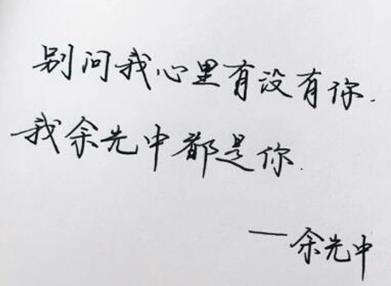 别问我心里有没有你.
我余光中都是你.
——余光中